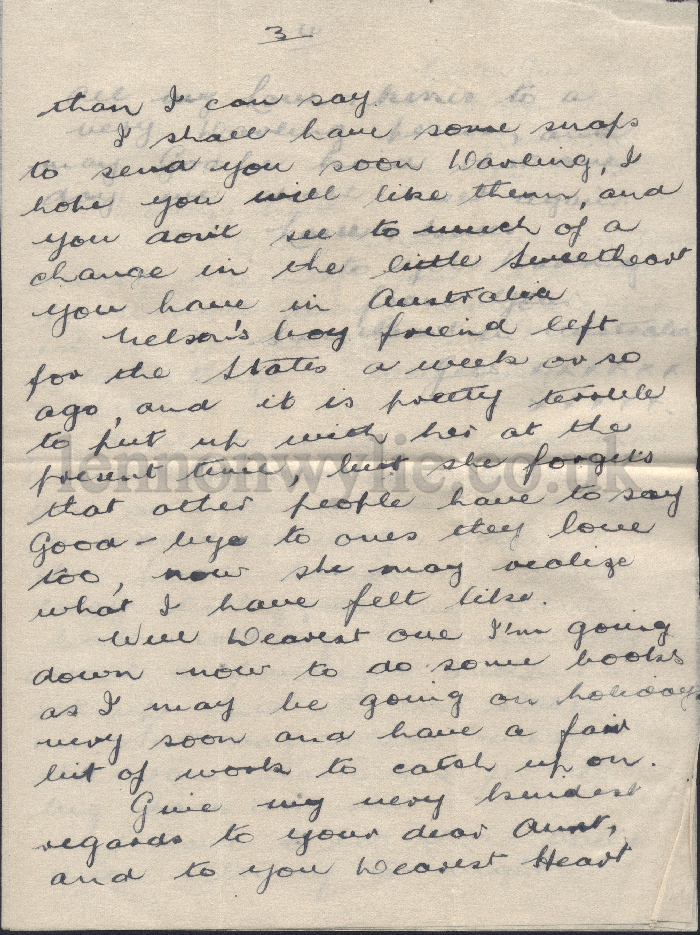 3
than I can say.
I shall have some snaps
to send you soon Darling, I
hope you will like them, and
you don't see to much of a
change in the little Sweetheart
you have in Australia
Nelson's boy friend left
for the States a week or so
ago, and it is pretty terrible
to put up with her at the
present time, but she forgets
that other people have to say
Good-bye to ones they love
too, now she may realize
what I have felt like.
Well Dearest one I'm going
down now to do some books
as I may be going on holidays
very soon and have a fair
bit of work to catch up on.
Give my very kindest
regards to your dear Aunt,
and to you Dearest Heart
lennonwylie.co.uk